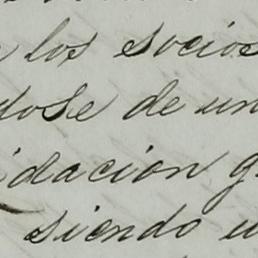 los socios
dose de un
idación g
siendo u